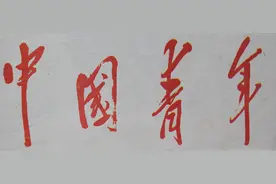 中國青年